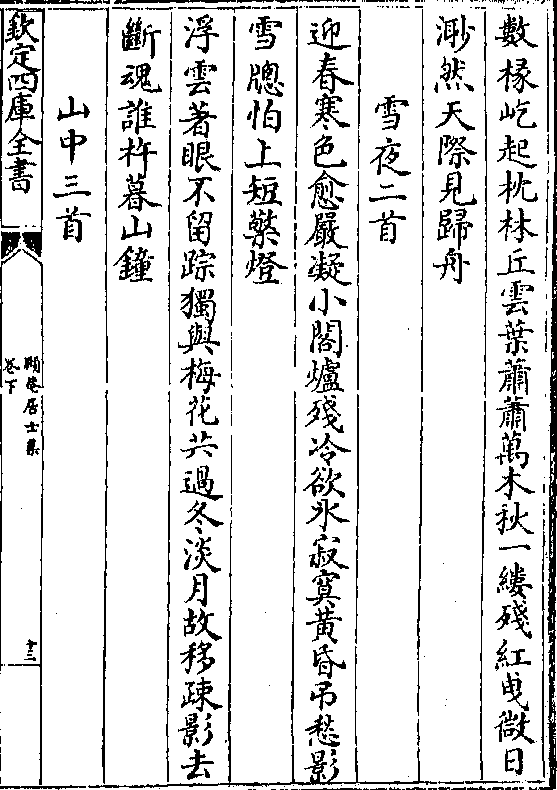 數椽屹起枕林丘雲葉蕭蕭萬木秋一縷殘紅曳微日
渺然天際見歸舟
雪夜二首
迎春寒色愈嚴凝小閣爐殘冷欲氷寂寞黃昏吊愁影
雪牕怕上短檠燈
浮雲著眼不留踪獨與梅花共過冬淡月故移疎影去
斷魂誰杵暮山鐘
山中三首
欽定四庫全書
頤菴居士集
卷下
十三